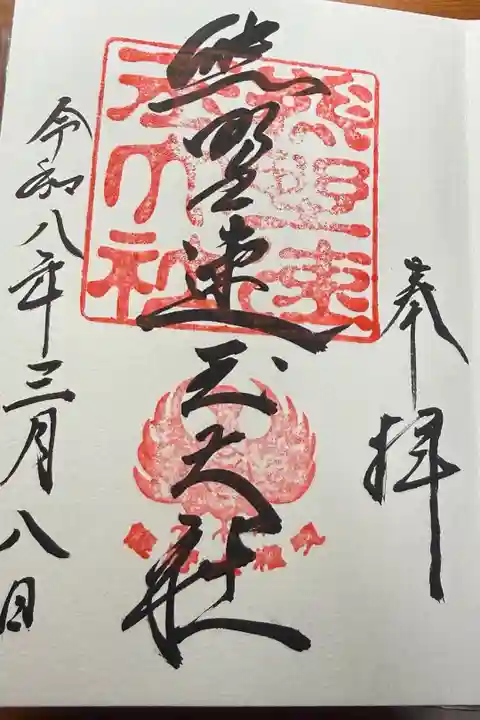 奉拝
熊野速玉大社
令和八年三月八日
熊野速玉大社